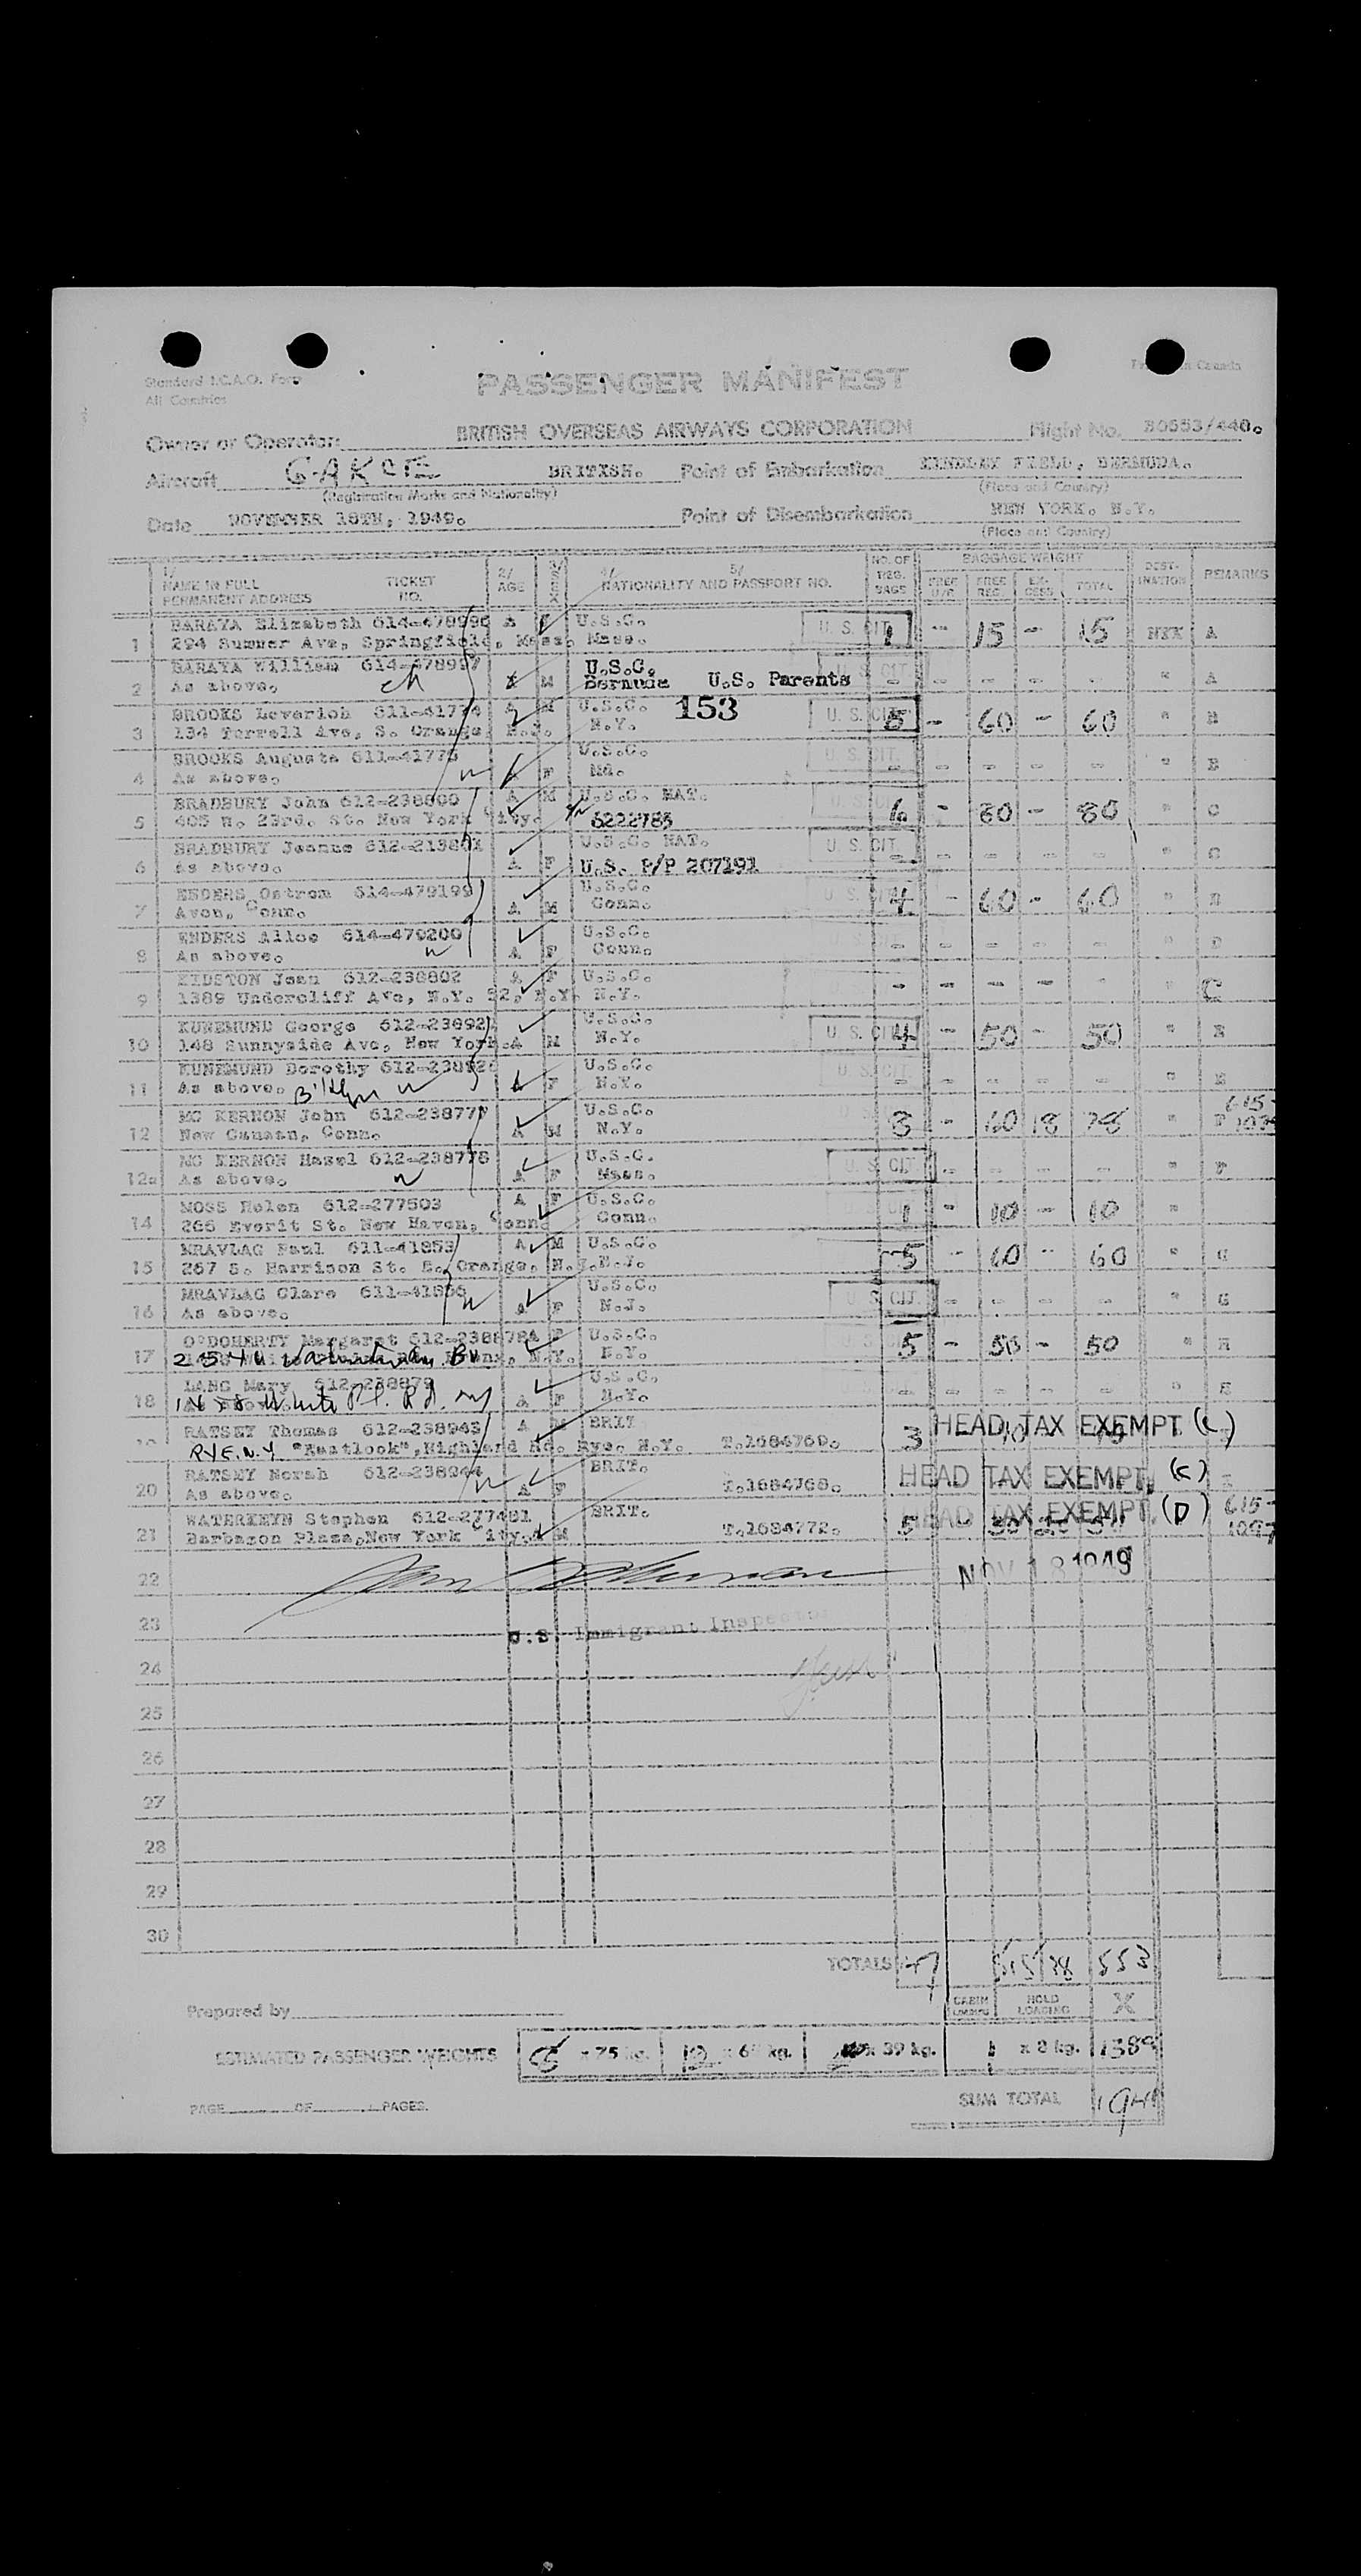 Standard I.C.A.O. Form
All Countries
PASSENGER MANIFEST
Owner or Operator: BRITISH OVERSEAS AIRWAYS CORPORATION Flight No. B0553/440.
Aircraft BRITISH. Point of Embarkation KINDLEY FIELD, BERMUDA.
(Registration Marks and Nationality) (Place and Country)
Date NOVEMBER 18TH, 1949. Point of Disembarkation NEW YORK. N.Y.
(Place and Country)
1/ NAME IN FULL TICKET 2/ 3/ 4/ 5/ NO. OF BAGGAGE WEIGHT DEST- REMARKS
PERMANENT ADDRESS NO. AGE SEX NATIONALITY AND PASSPORT NO. REG. BAGS FREE FREE REG. EX-CESS TOTAL INATION
BARAYA Elizabeth A F U.S.C. U.S. CIT.
1 294 Sumner Ave, Springfield, Mass. Mass. 1 - 15 - 15 NYK A
BARAYA William 614-478997 U.S.C. U.S. CIT.
2 As above. M Bermuda U.S. Parents - - - - - " A
BROOKS Leverich 611-41774 A M U.S.C. 153 U.S. CIT.
3 134 Terrell Ave, S. Orange, N.J. N.Y. 5 - 60 - 60 " B
BROOKS Augusta 611-41775 U.S.C. U.S. CIT.
4 As above. A F Md. - - - - - " B
BRADBURY John 612-238800 A M U.S.C. NAT.
5 405 W. 23rd. St. New York City. 6222785 - 80 - 80 " C
BRADBURY Jeanne U.S.C. NAT. U.S. CIT.
6 As above. A F U.S. P/P 207191 - - - - - " C
ENDERS Ostrom 614-479199 U.S.C.
7 Avon, Conn. A M Conn. 4 - 60 - 60 "
ENDERS Alice 614-479200 U.S.C.
8 As above. A F Conn. - - - - - " D
Jean 612-238802 A F U.S.C.
9 1389 Undercliff Ave, N.Y. 52, N.Y. N.Y. - - - - - " C
KUNEMUND George U.S.C. U.S. CIT.
10 148 Sunnyside Ave, New York. A M N.Y. 4 - 50 - 50 " E
KUNEMUND Dorothy U.S.C. U.S. CIT.
11 As above. B'klyn A F N.Y. - - - - - " E
MC KERNON John 612-238777 U.S.C. 615-
12 New Canaan, Conn. A M N.Y. 3 - 60 18 78 " F
MC KERNON Hazel 612-238778 U.S.C. U.S. CIT.
12a As above. A F Mass. - - - - - " F
MOSS Helen 612-277503 A F U.S.C.
14 266 Everit St. New Haven, Conn. Conn. 1 - 10 - 10 "
MRAVLAG Paul A M U.S.C.
15 267 S. Harrison St. E. Orange, N.J. N.J. 5 - 60 - 60 " G
MRAVLAG Clare U.S.C. U.S. CIT.
16 As above. A F N.J. - - - - - " G
O'DOHERTY Margaret 612-238878 A F U.S.C.
17 N.Y. N.Y. 5 - 50 - 50 " H
LANG Mary 612-238879 U.S.C.
18 White Pl. Rd. A F N.Y. - - - - - "
RATSEY Thomas 612-238943 A M BRIT HEAD TAX EXEMPT (C)
RYE. N.Y "Eastlook", Highland Rd. Rye. N.Y. T.1684769. 3
RATSEY Norah 612-238944 BRIT. HEAD TAX EXEMPT (C)
20 As above. A F T.1684768.
WATERKEYN Stephen BRIT. HEAD TAX EXEMPT (D) 615-
21 Barbazon Plaza, New York City. A M T.1684772. 5
22 NOV 18 1949
23 U.S. Immigrant Inspector
24
25
26
27
28
29
30
TOTALS 47 515 38 553
Prepared by CABIN LOADING HOLD LOADING X
ESTIMATED PASSENGER WEIGHTS x 75 kg. x 65 kg. x 39 kg. 1 x 8 kg. 1389
SUM TOTAL
PAGE OF PAGES.